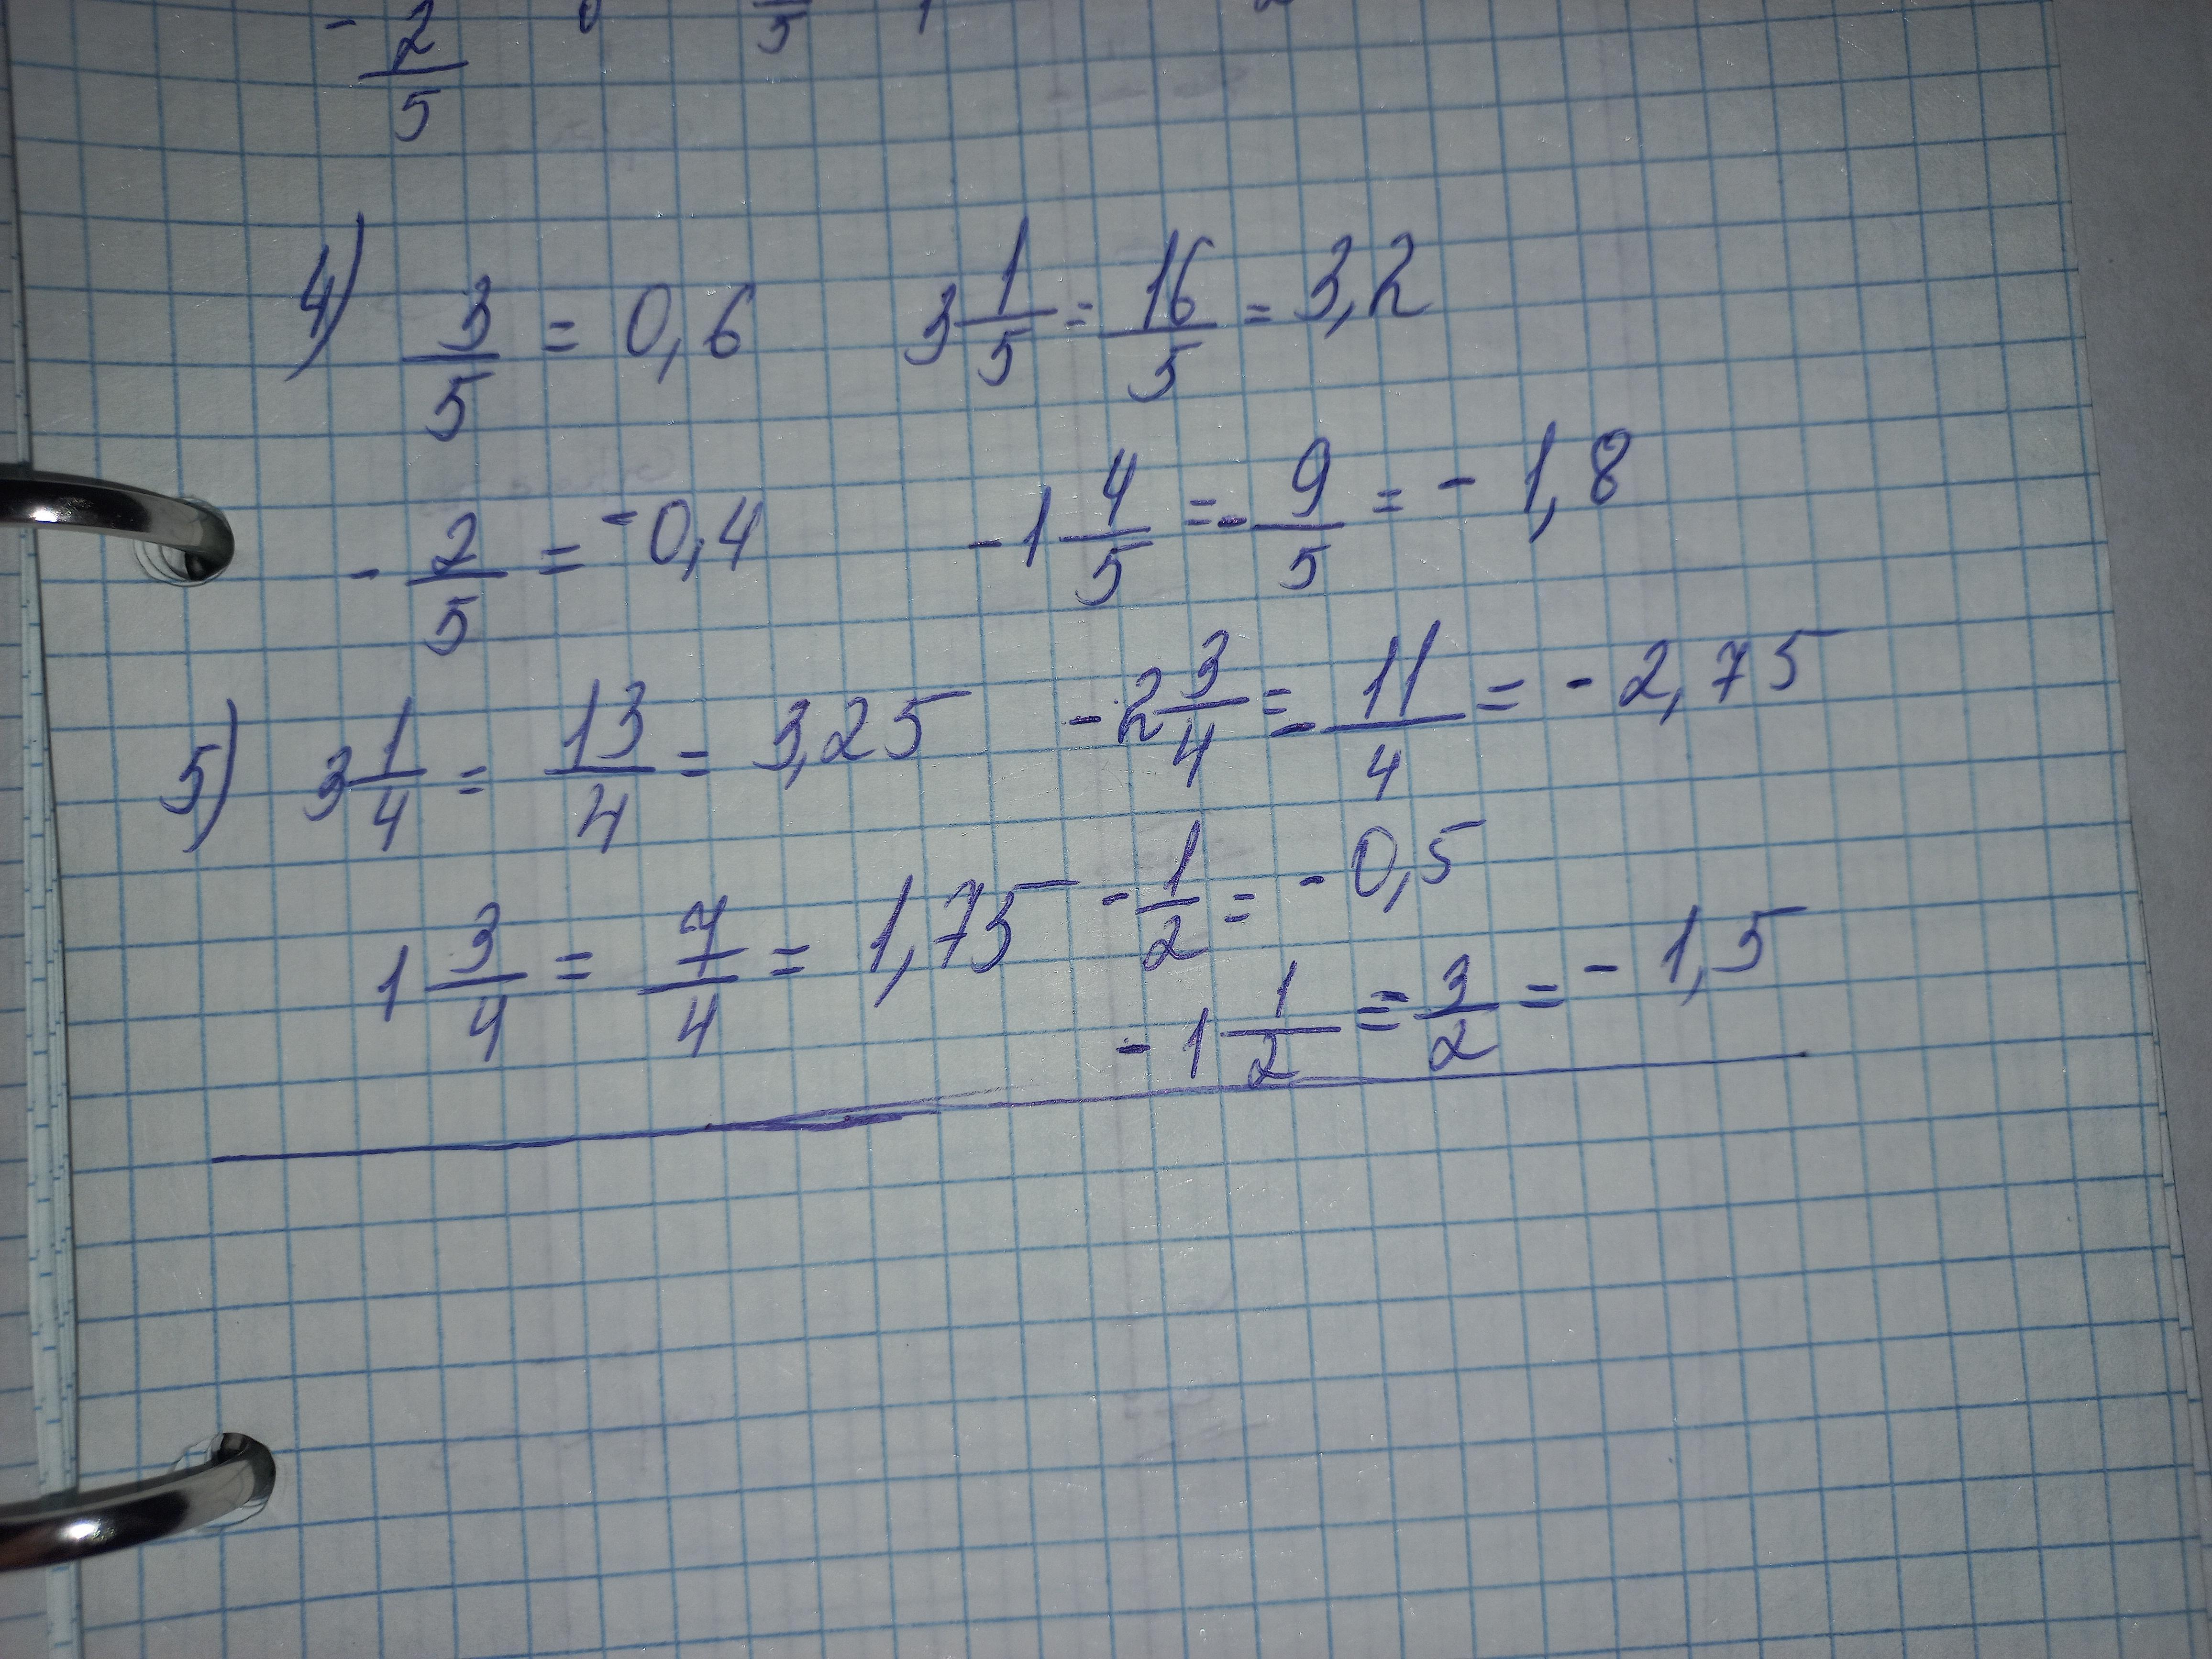 - 2/5 0 5 1
4) 3/5 = 0,6 3 1/5 = 16/5 = 3,2
- 2/5 = -0,4 -1 4/5 = - 9/5 = - 1,8
5) 3 1/4 = 13/4 = 3,25 - 2 3/4 = - 11/4 = - 2,75
1 3/4 = 7/4 = 1,75 - 1/2 = - 0,5
- 1 1/2 = - 3/2 = - 1,5